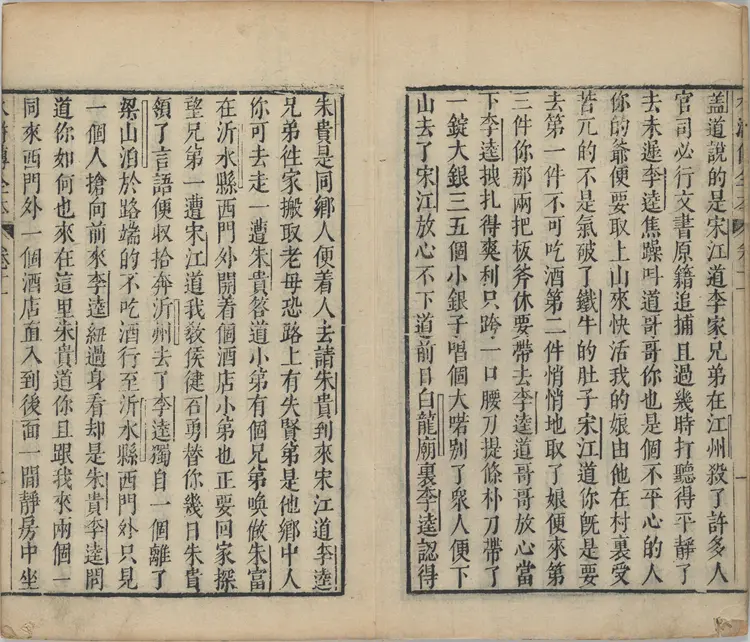 蓋道說的是宋江道李家兄弟在江州殺了許多人
官司必行文書原籍追捕且過幾時打聽得平靜了
去未遲李逵焦躁叫道哥哥你也是個不平心的人
你的爺便要取上山來快活我的娘由他在村裏受
苦兀的不是氣破了鐵牛的肚子宋江道你既是要
去第一件不可吃酒第二件悄悄地取了娘便來第
三件你那兩把板斧休要帶去李逵道哥哥放心當
下李逵拽扎得爽利只跨一口腰刀提條朴刀帶了
一錠大銀三五個小銀子唱個大喏別了衆人便下
山去了宋江放心不下道前日白龍廟裏李逵認得
朱貴是同鄉人便着人去請朱貴到來宋江道李逵
兄弟徃家搬取老母恐路上有失賢弟是他鄉中人
你可去走一遭朱貴答道小弟有個兄弟喚做朱富
在沂水縣西門外開着個酒店小弟也正要回家探
望兄弟一遭宋江道我敎侯健石勇替你幾日朱貴
領了言語便収拾奔沂州去了李逵獨自一個離了
梁山泊於路端的不吃酒行至沂水縣西門外只見
一個人搶向前來李逵紐過身看却是朱貴李逵問
道你如何也來在這里朱貴道你且跟我來兩個一
同來西門外一個酒店直入到後面一間靜房中坐